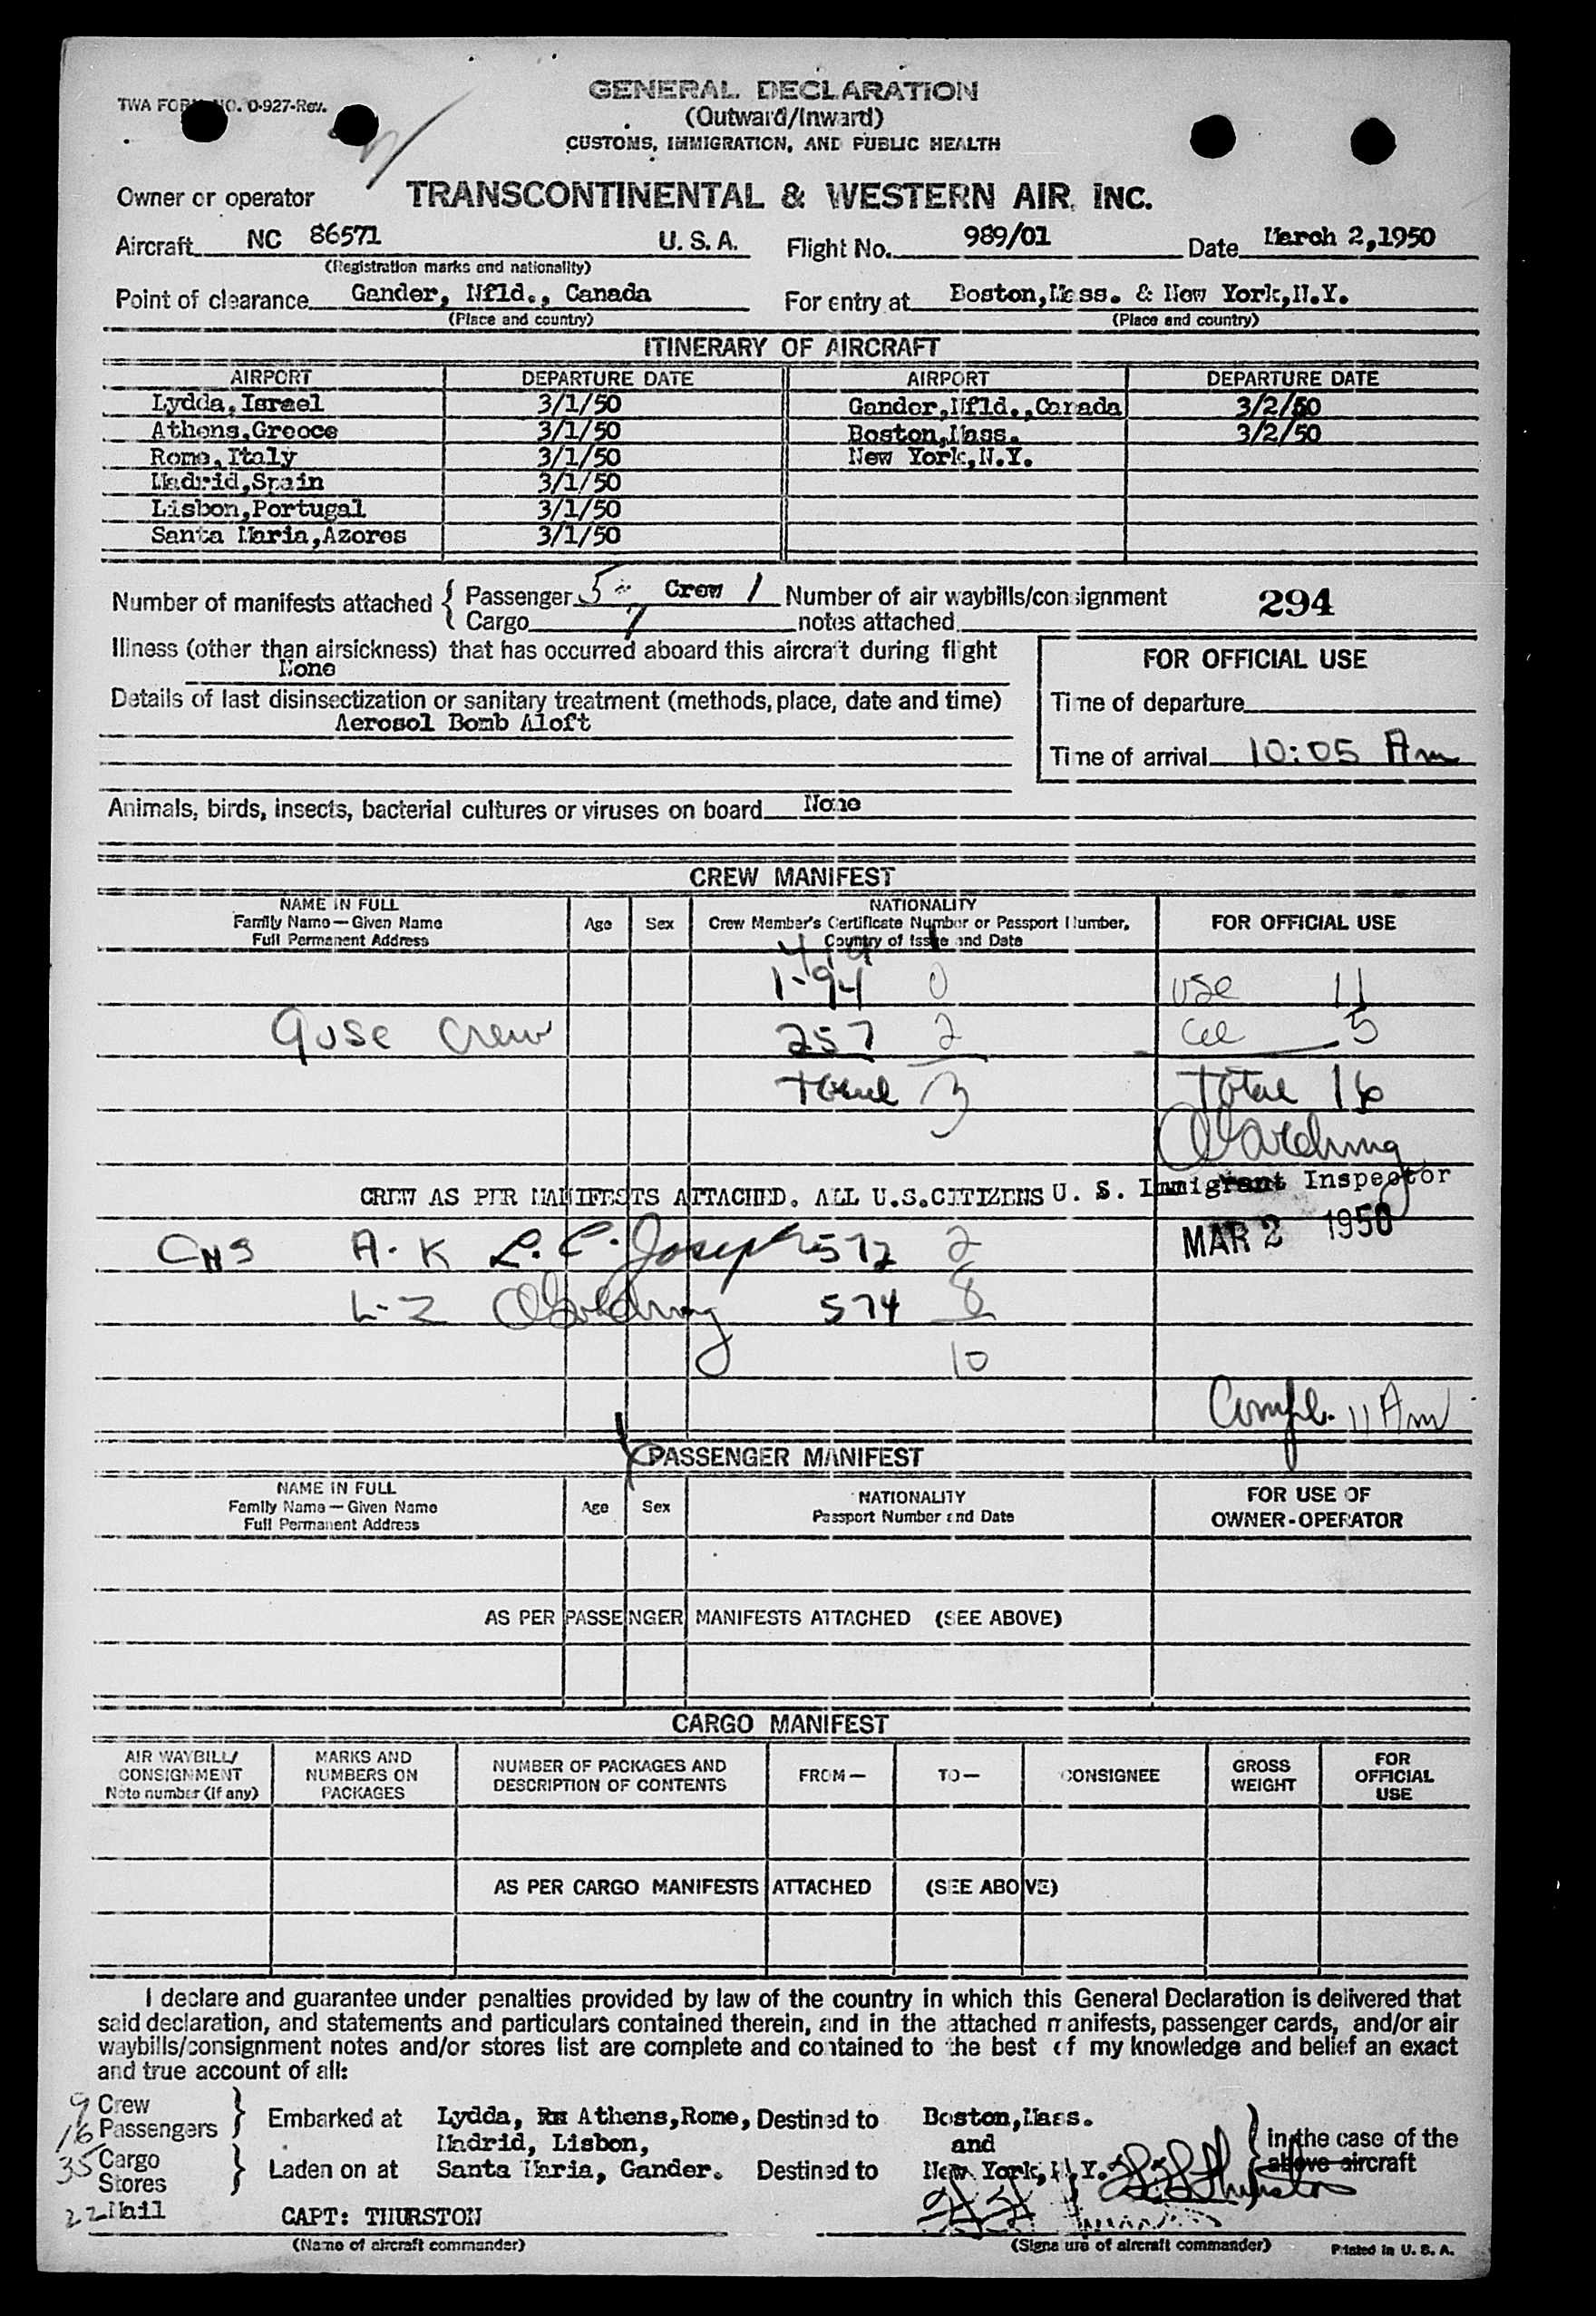 GENERAL DECLARATION
TWA FORM NO. O-927-Rev.
(Outward/Inward)
CUSTOMS, IMMIGRATION, AND PUBLIC HEALTH
Owner or operator TRANSCONTINENTAL & WESTERN AIR, INC.
Aircraft NC 86571 U. S. A. Flight No. 989/01 Date March 2,1950
(Registration marks and nationality)
Point of clearance Gander, Nfld., Canada For entry at Boston,Mass. & New York,N.Y.
(Place and country) (Place and country)
ITINERARY OF AIRCRAFT
AIRPORT DEPARTURE DATE AIRPORT DEPARTURE DATE
Lydda,Israel 3/1/50 Gander,Nfld.,Canada 3/2/50
Athens,Greece 3/1/50 Boston,Mass. 3/2/50
Rome,Italy 3/1/50 New York,N.Y.
Madrid,Spain 3/1/50
Lisbon,Portugal 3/1/50
Santa Maria,Azores 3/1/50
Number of manifests attached { Passenger 5 Crew 1 Number of air waybills/consignment 294
Cargo 7 notes attached
Illness (other than airsickness) that has occurred aboard this aircraft during flight
None
FOR OFFICIAL USE
Details of last disinsectization or sanitary treatment (methods, place, date and time)
Aerosol Bomb Aloft
Time of departure
Time of arrival 10:05 Am
Animals, birds, insects, bacterial cultures or viruses on board None
CREW MANIFEST
NAME IN FULL NATIONALITY
Family Name—Given Name Age Sex Crew Member's Certificate Number or Passport Number, FOR OFFICIAL USE
Full Permanent Address Country of Issue and Date
1-94 0 USC 11
9 USC Crew 257 2 5
Total 3 Total 16
CREW AS PER MANIFESTS ATTACHED. ALL U.S.CITIZENS U. S. Immigrant Inspector
MAR 2 1950
A-K L. C. Joseph 572 2
L-Z 574 8
10
Compl. 11 Am
PASSENGER MANIFEST
NAME IN FULL NATIONALITY FOR USE OF
Family Name—Given Name Age Sex Passport Number and Date OWNER-OPERATOR
Full Permanent Address
AS PER PASSENGER MANIFESTS ATTACHED (SEE ABOVE)
CARGO MANIFEST
AIR WAYBILL/ MARKS AND NUMBER OF PACKAGES AND FROM— TO— CONSIGNEE GROSS FOR
CONSIGNMENT NUMBERS ON DESCRIPTION OF CONTENTS WEIGHT OFFICIAL
Note number (if any) PACKAGES USE
AS PER CARGO MANIFESTS ATTACHED (SEE ABOVE)
I declare and guarantee under penalties provided by law of the country in which this General Declaration is delivered that
said declaration, and statements and particulars contained therein, and in the attached manifests, passenger cards, and/or air
waybills/consignment notes and/or stores list are complete and contained to the best of my knowledge and belief an exact
and true account of all:
9 Crew
16 Passengers } Embarked at Lydda, Athens,Rome, Destined to Boston,Mass.
Madrid, Lisbon, and
35 Cargo
Stores } Laden on at Santa Maria, Gander. Destined to New York,N.Y.
} In the case of the
above aircraft
22 Mail
CAPT: THURSTON
(Name of aircraft commander) (Signature of aircraft commander) Printed in U. S. A.